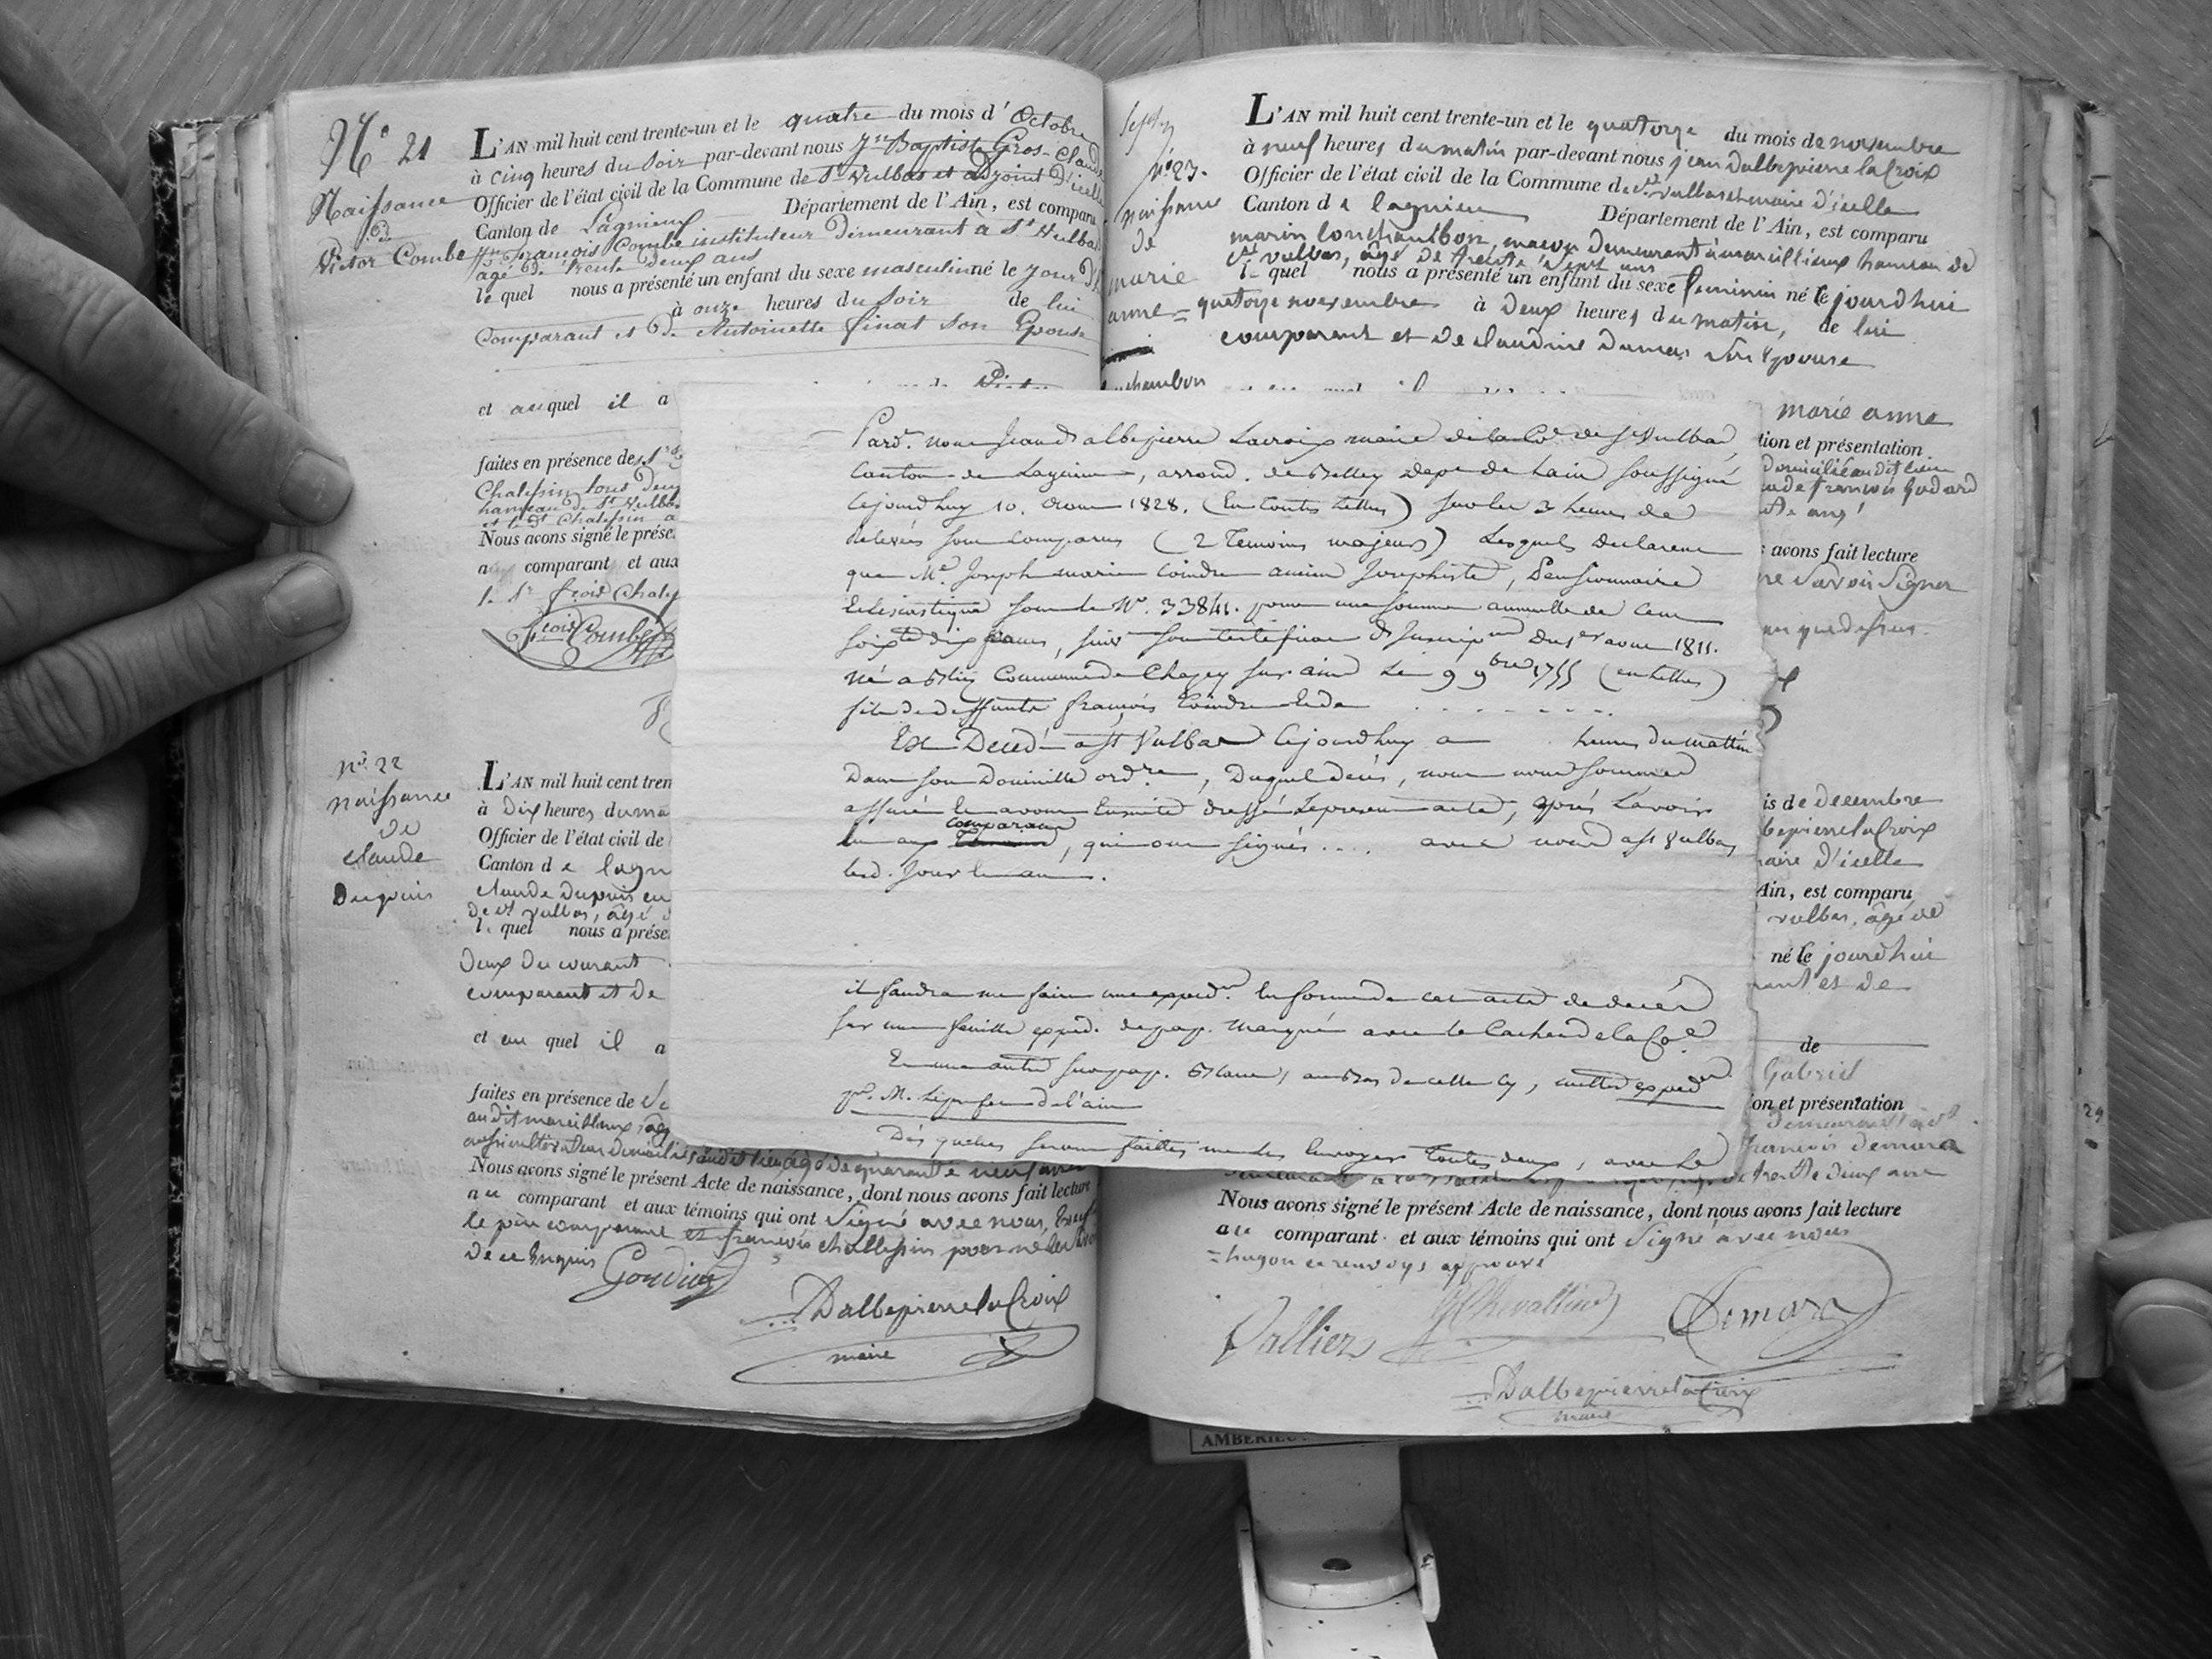 N° 21
Naissance
de
Victor Combe
L'AN mil huit cent trente-un et le quatre du mois d'Octobre
à cinq heures du soir par-devant nous Jn Baptiste Gros-Claude
Officier de l'état civil de la Commune de St Vulbas et adjoint d'icelle
Canton de Lagnieux Département de l'Ain, est comparu
François Combe instituteur demeurant à St Vulbas
agé de trente deux ans
le quel nous a présenté un enfant du sexe masculin né le jour d'
à onze heures du soir de lui
Comparant et de Antoinette finat son Epouse
et auquel il a
faites en présence de
Chalessin tous deux
hameau de St Vulbas
et le dt Chalessin a
Nous avons signé le prése
au comparant et aux
le Sr froid Chales
Combe
n° 22
naissance
de
claude
Dupuis
L'AN mil huit cent tren
à dix heures du ma
Officier de l'état civil de
Canton de lagn
claude Dupuis cu
de st vulbas, âgé
le quel nous a prése
deux du courant
comparant et de
et au quel il a
faites en présence de
audit marcilleux, âg
domicilié audit lieu âgé de quarante neuf ans
Nous avons signé le présent Acte de naissance, dont nous avons fait lecture
au comparant et aux témoins qui ont signé avec nous,
le père comparant et francois challessin pour ne le
de ce enquis Goudin
Dalbepierre la Croix
maire
N° 23.
naissance
de
marie
anne
L'AN mil huit cent trente-un et le quatorze du mois de novembre
à neuf heures du matin par-devant nous jean Dalbepierre la Croix
Officier de l'état civil de la Commune de st vulbas et maire d'icelle
Canton de lagnieu Département de l'Ain, est comparu
marin lonchambon, maçon demeurant à marcillieux hameau de
st vulbas, âgé de trente sept ans
le quel nous a présenté un enfant du sexe feminin né le jourdhui
quatorze novembre à deux heures du matin, de lui
comparant et de claudine dumas son epouse
marie anne
tion et présentation
domicilié audit lieu
françois Godard
te ans
avons fait lecture
re savoir signer
que dessus.
Pard. nous Jean dalbepierre Lacroix maire de la Cne de St Vulbas
Canton de Lagnieu, arrond. de Belley Dept de Lain soussigné
Cejourdhuy 10. 1828. (En toutes Lettres) sur les 3 heures de
Relevée sont comparus (2 Temoins majeurs) Lesquels declarent
que Mr. Joseph marie Coindre ancien Josephiste, Pensionnaire
Eclésiastique sous le N°. 33841. pour une somme annuelle de cent
soixte dix francs, suivt son certificat d'Inscripon du 1er aout 1811.
Né a Bliez Commune de Chazey sur ain Le 9 9bre 1755 (en Lettres)
fils de deffunts françois Coindre et de . . . . . . .
Est Decedé a St Vulbas Cejourdhuy a . heures du mattin
Dans son Domicille ordre, Duquel decès, nous nous sommes
assuré et avons Ensuite dressé le present acte, après L'avoir
lu aux comparans, qui ont signés .... avec nous a St Vulbas
lesd. Jour et an.
il faudra me faire une expedon. En forme de cet acte de decès
sur une feuille expéd. de pap. marqué avec le Cachet de la Cne.
Et une autre sur pap. Blanc, au Bas de celle cy, mettre expedon
pr. M. Le prefet de l'ain
Dés quelles seront faittes me les Envoyer toutes deux, avec Le
is de decembre
bepierre la Croix
maire d'icelle
Ain, est comparu
vulbas, âgé de
né le jourdhui
rant et de
de
Gabriel
ion et présentation
françois demora
de trente deux ans
Nous avons signé le présent Acte de naissance, dont nous avons fait lecture
au comparant et aux témoins qui ont signé avec nous
renvoys approuvé
Vallier Chevallier Demora
Dalbepierre la Croix
maire